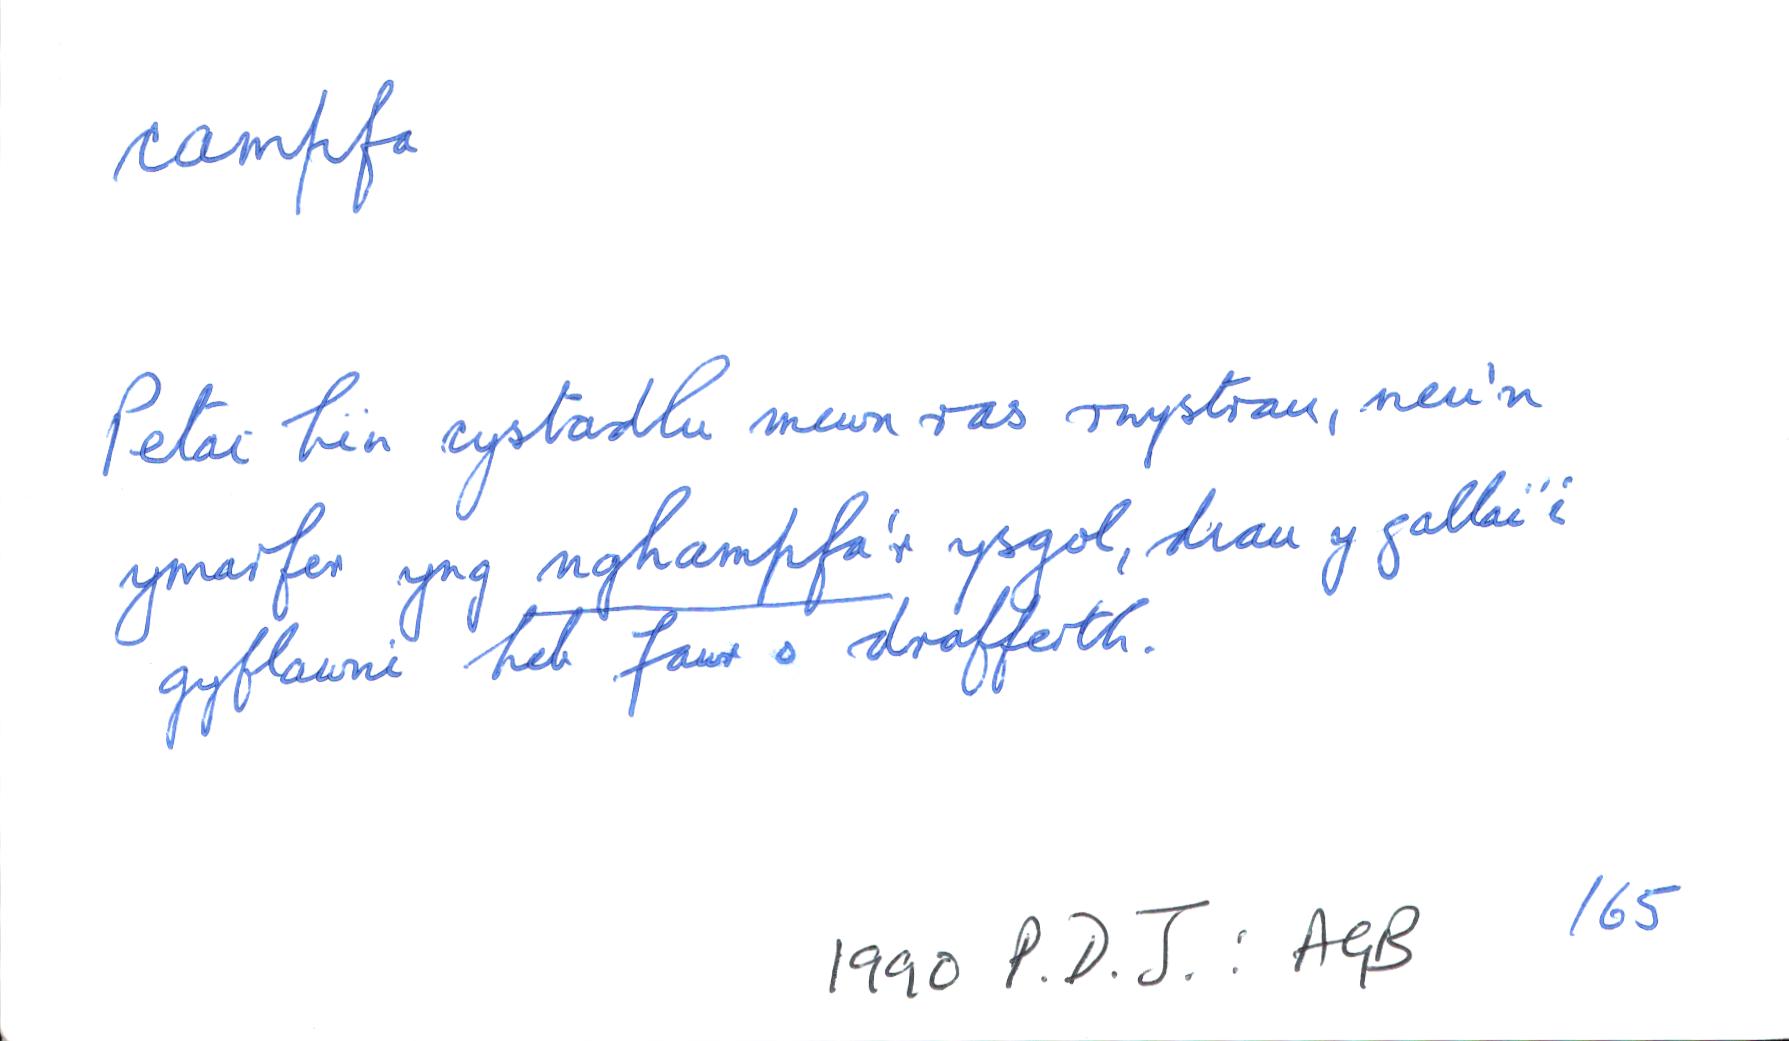 campfa
Petai hi'n cystadlu mewn ras rwystrau, neu'n
ymarfer yng nghampfa'r ysgol, diau y gallai'i
gyflawni heb fawr o drafferth.
/65
1990 P.D.J.: AGB